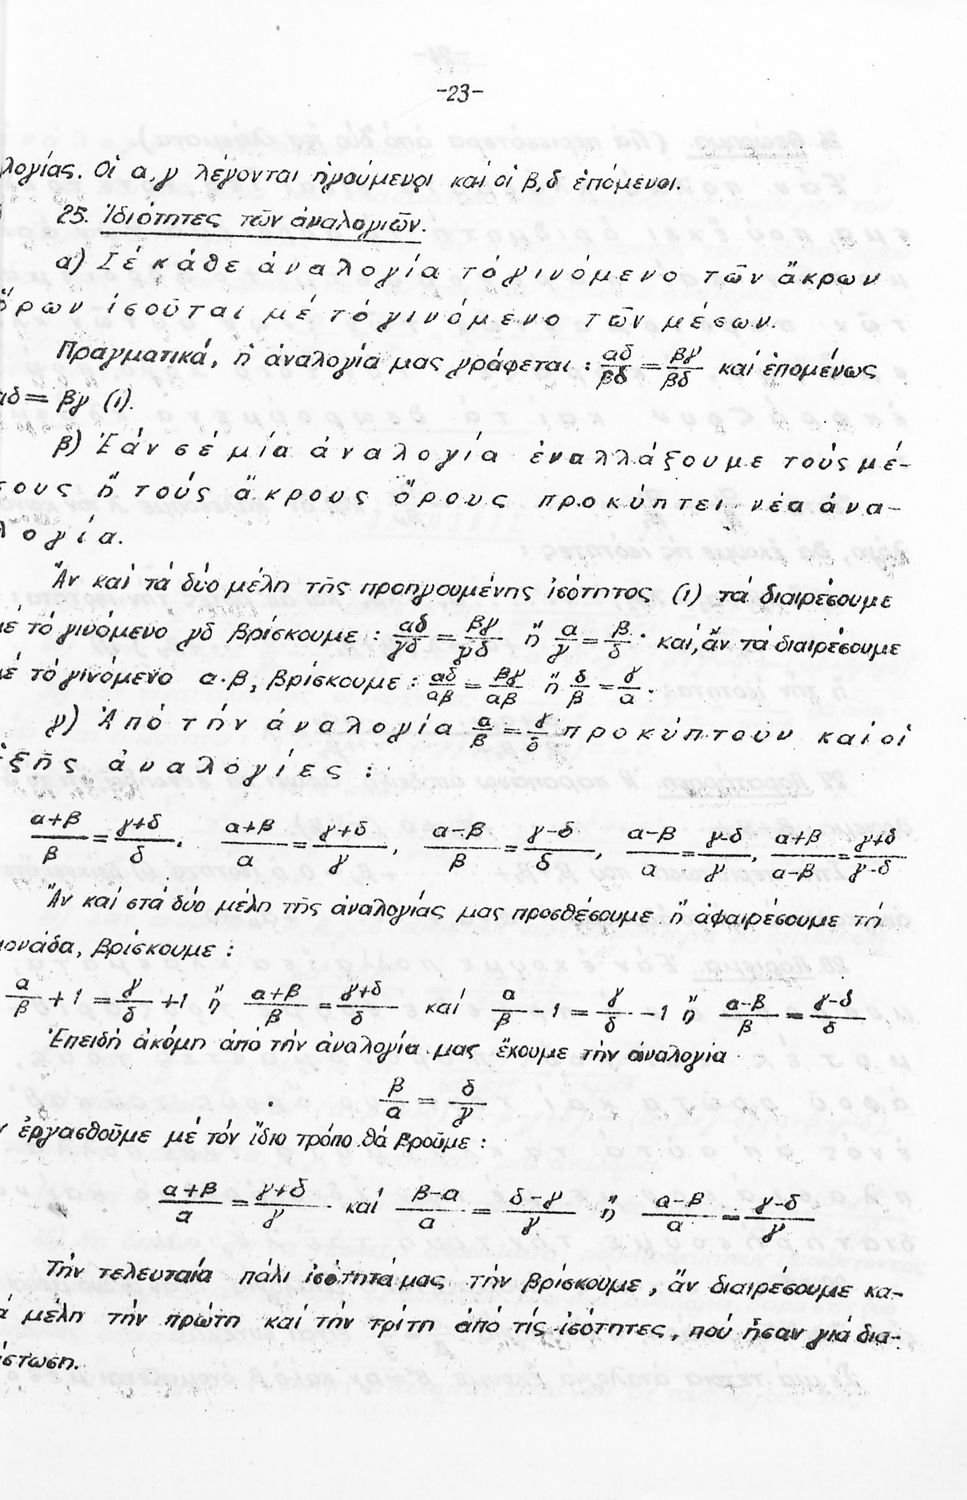 -23-
λογίας. Οἱ α,γ λέγονται ἡγούμενοι καί οἱ β,δ ἑπόμενοι.
25. Ἰδιότητες τῶν ἀναλογιῶν.
α) Σέ κάθε ἀναλογία τό γινόμενο τῶν ἄκρων
ὅρων ἰσοῦται μέ τό γινόμενο τῶν μέσων.
Πραγματικά, ἡ ἀναλογία μας γράφεται : αδ/βδ = βγ/βδ καί ἑπομένως
αδ = βγ (1).
β) Ἐάν σέ μία ἀναλογία ἐναλλάξουμε τούς μέ-
σους ἤ τούς ἄκρους ὅρους προκύπτει νέα ἀνα-
λογία.
Ἄν καί τά δύο μέλη τῆς προηγουμένης ἰσότητος (1) τά διαιρέσουμε
μέ τό γινόμενο γδ βρίσκουμε : αδ/γδ = βγ/γδ ἤ α/γ = β/δ · καί, ἄν τά διαιρέσουμε
μέ τό γινόμενο α·β, βρίσκουμε : αδ/αβ = βγ/αβ ἤ δ/β = γ/α .
γ) Ἀπό τήν ἀναλογία α/β = γ/δ προκύπτουν καί οἱ
ἑξῆς ἀναλογίες :
α+β/β = γ+δ/δ , α+β/α = γ+δ/γ , α-β/β = γ-δ/δ , α-β/α = γ-δ/γ , α+β/α-β = γ+δ/γ-δ
Ἄν καί στά δύο μέλη τῆς ἀναλογίας μας προσθέσουμε ἤ ἀφαιρέσουμε τή
μονάδα, βρίσκουμε :
α/β + 1 = γ/δ + 1 ἤ α+β/β = γ+δ/δ καί α/β - 1 = γ/δ - 1 ἤ α-β/β = γ-δ/δ
Ἐπειδή ἀκόμη ἀπό τήν ἀναλογία μας ἔχουμε τήν ἀναλογία
β/α = δ/γ
ν ἐργασθοῦμε μέ τόν ἴδιο τρόπο θά βροῦμε :
α+β/α = γ+δ/γ καί β-α/α = δ-γ/γ ἤ α-β/α = γ-δ/γ
Τήν τελευταία πάλι ἰσότητά μας τήν βρίσκουμε, ἄν διαιρέσουμε κα-
ά μέλη τήν πρώτη καί τήν τρίτη ἀπό τίς ἰσότητες, πού ἦσαν γιά δια-
ίστωση.